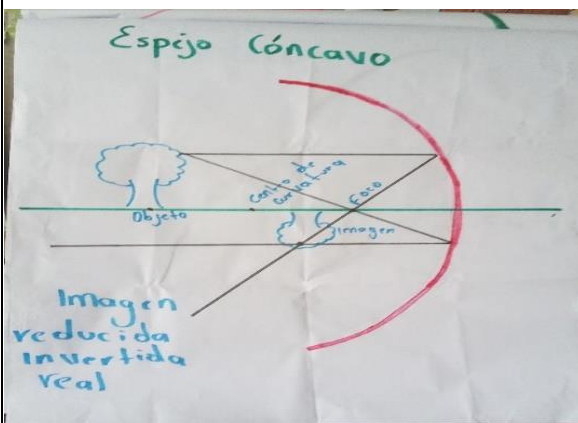 Espejo Cóncavo
Centro de
curvatura
Foco
Objeto
imagen
Imagen
reducida
Invertida
real